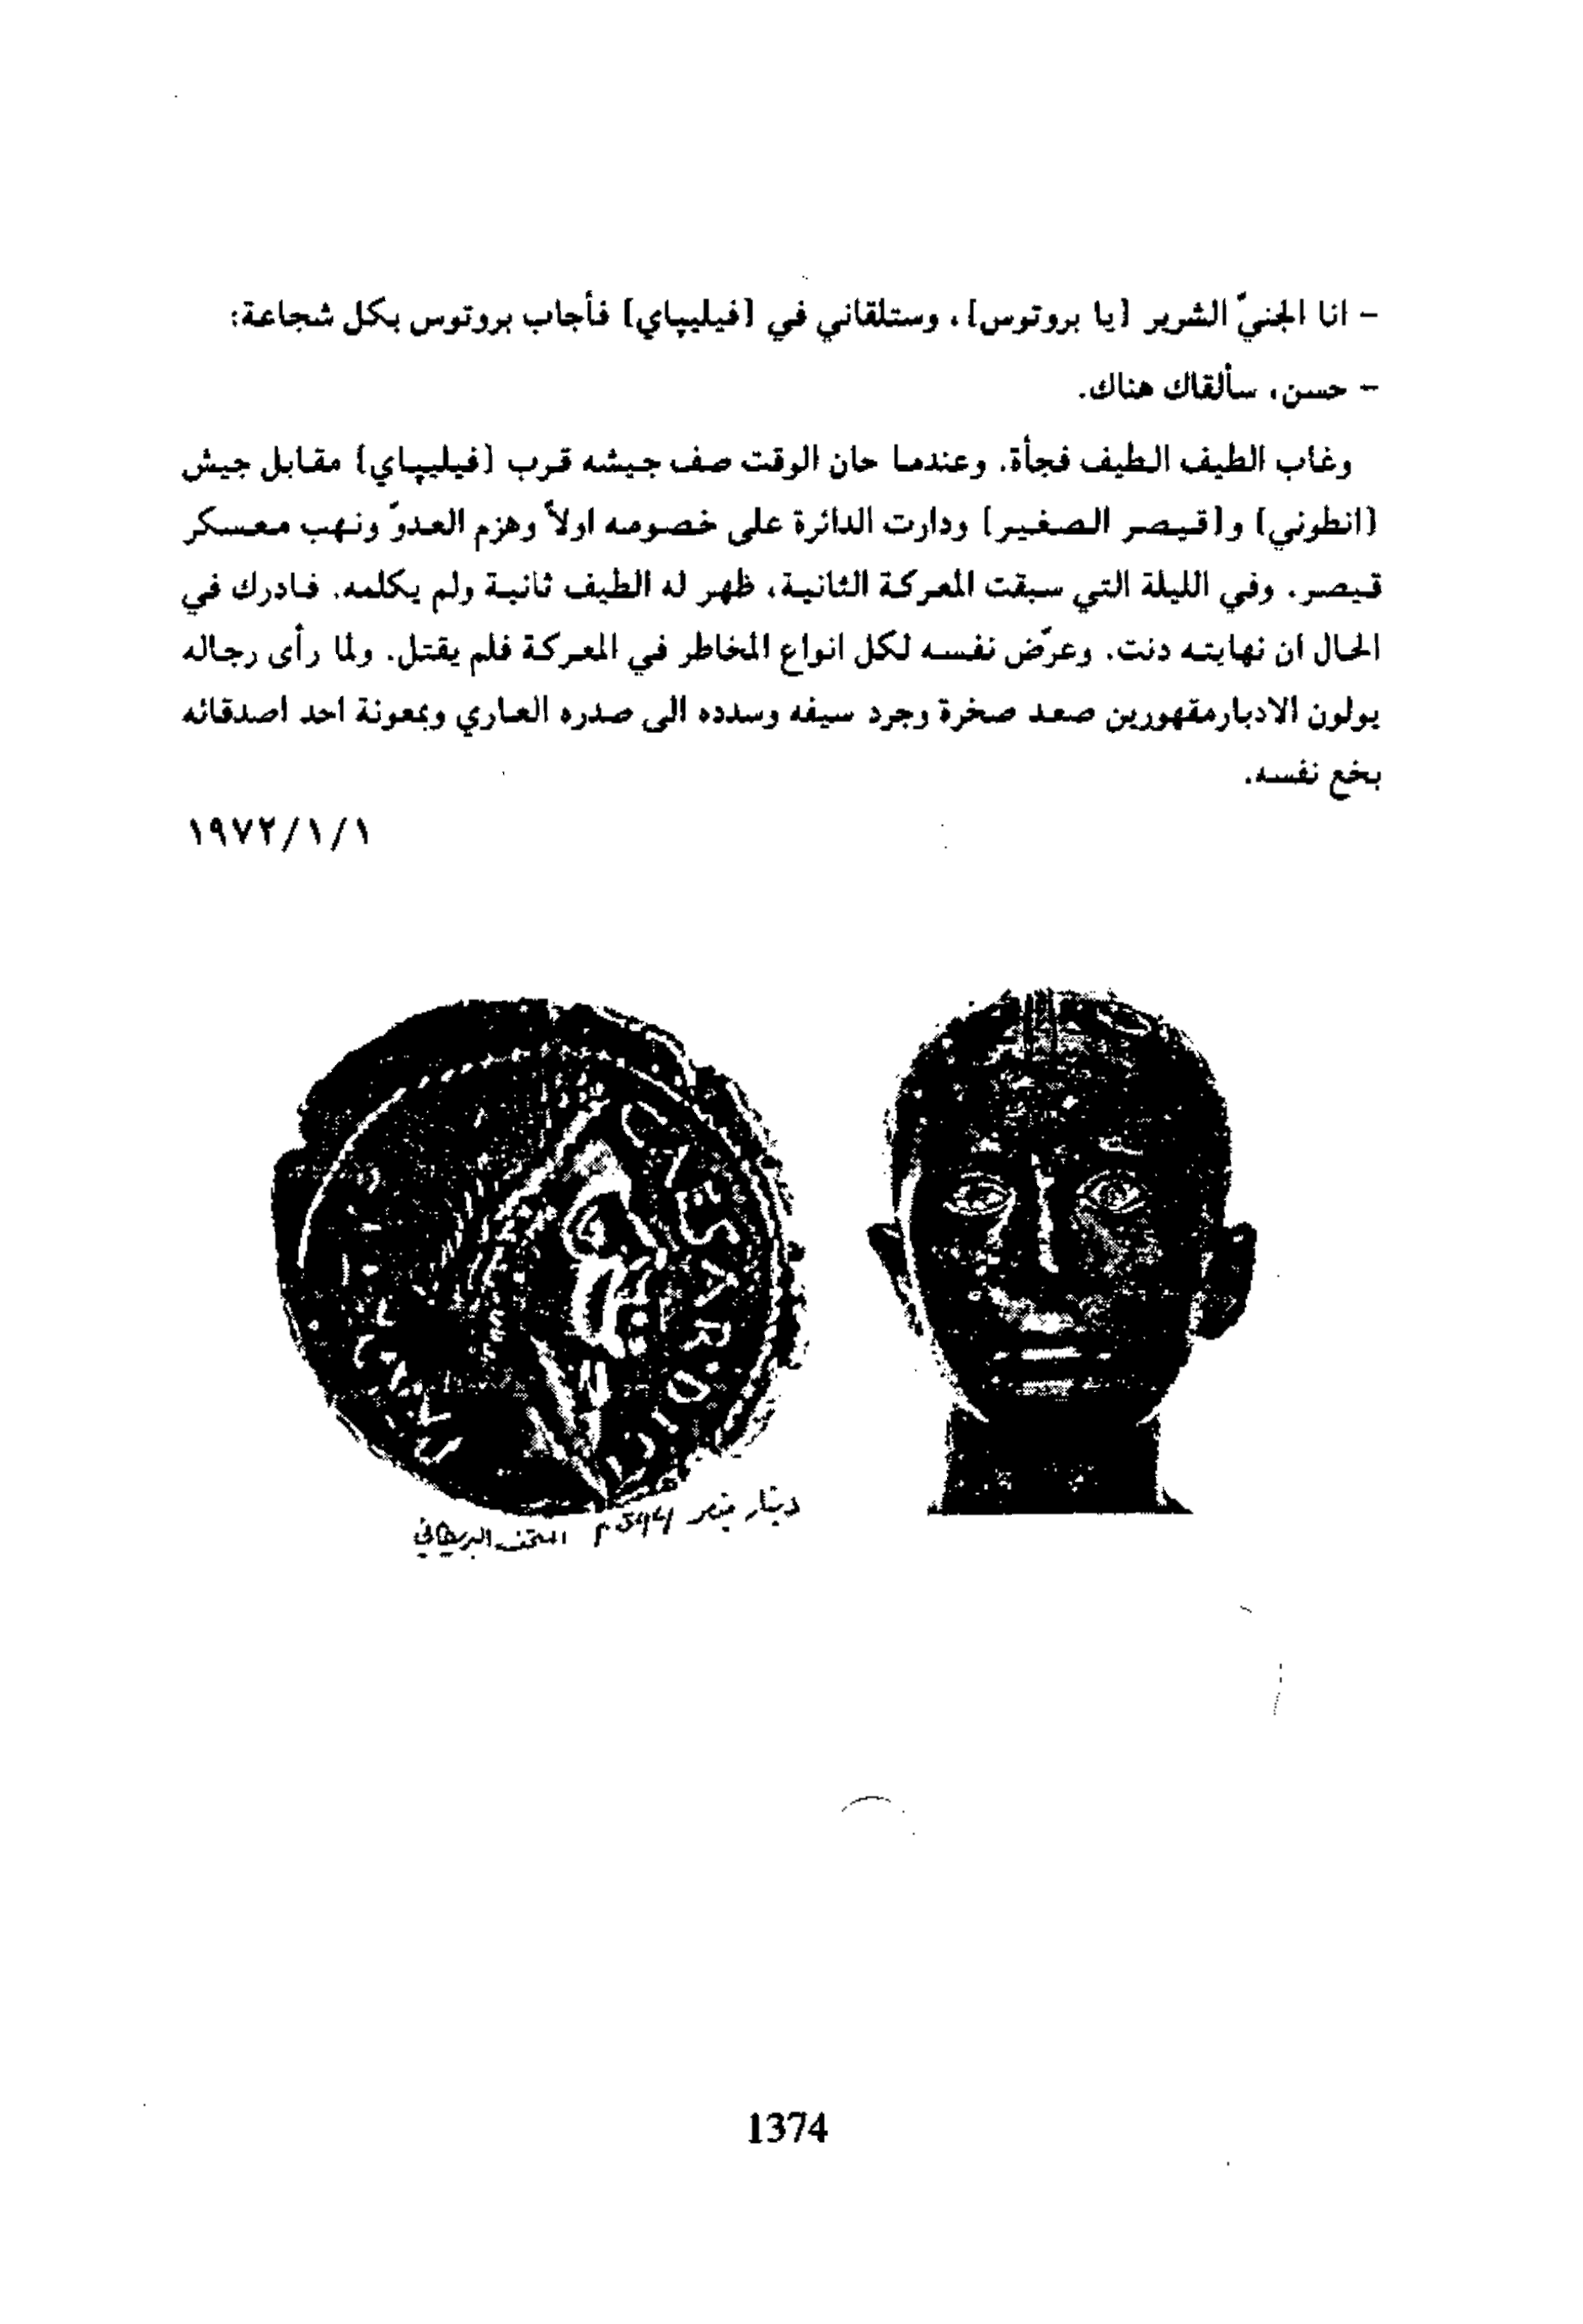 - انا الجنيّ الشرير [يا بروتوس]، وستلقاني في [فيليپاي] فأجاب بروتوس بكل شجاعة:
- حسن، سألقاك هناك.
وغاب الطيف الطيف فجأة. وعندما حان الوقت صف جيشه قرب [فيليپاي] مقابل جيش
[انطوني] و[قيصر الصغير] ودارت الدائرة على خصومه اولاً وهزم العدوّ ونهب معسكر
قيصر. وفي الليلة التي سبقت المعركة الثانية، ظهر له الطيف ثانية ولم يكلمه. فادرك في
الحال ان نهايته دنت. وعرّض نفسه لكل انواع المخاطر في المعركة فلم يقتل. ولما رأى رجاله
يولون الادبارمقهورين صعد صخرة وجرد سيفه وسدده الى صدره العاري وبمعونة احد اصدقائه
بخع نفسه.
١٩٧٢/١/١
CAESAR DIC
دينار قيصر المتحف البريطاني
1374